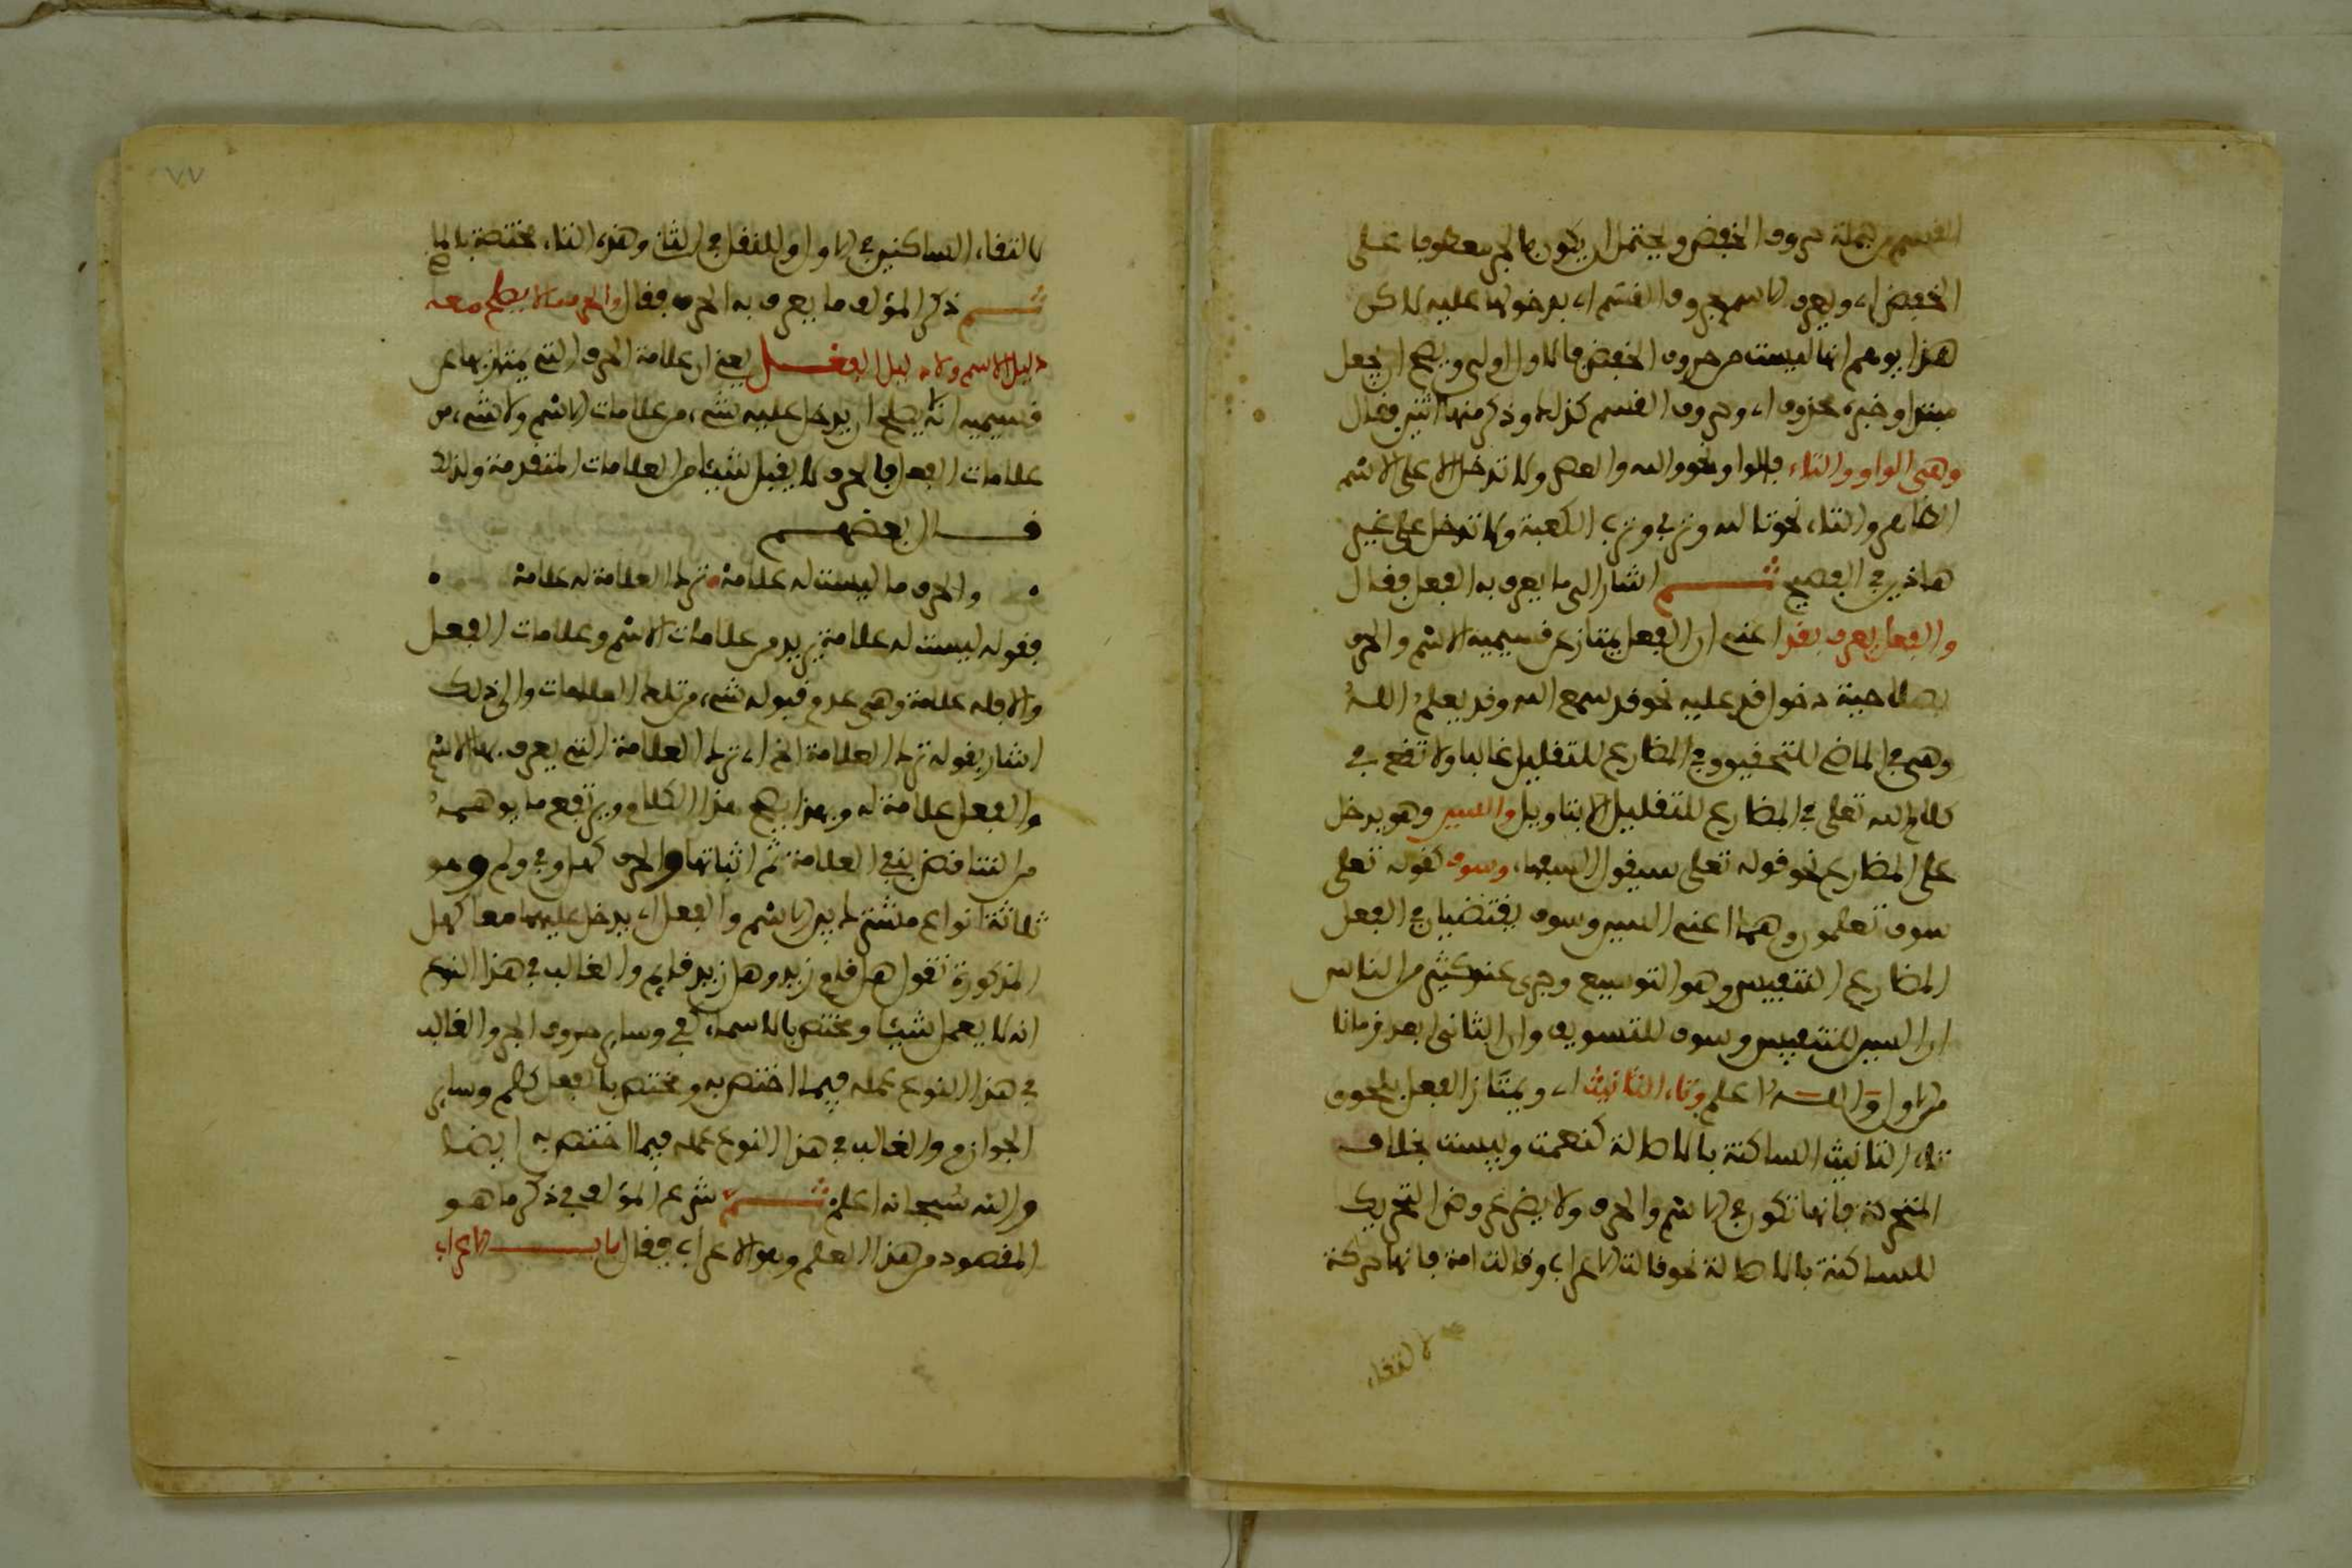 القسم من جملة حروف الخفض ويحتمل ان يكون بالجر معطوفا على
الخفض اي ويعرف الاسم بحروف القسم اي بدخولها عليه لاكن
هذا يوهم انها ليست من حروف الخفض فالاول اولى ويصح ان يجعل
مبتدا وخبره محذوف اي وحروف القسم كذلك وذكر منها اثنين فقال
وهي الواو والتاء فالواو نحو والله والعصر ولا تدخل الا على الاسم
الظاهر والتاء نحو تالله وتربي وترب الكعبة ولا تدخل على غير
هاذين في الفصيح ثم اشار الى ما يعرف به الفعل فقال
والفعل يعرف بقد اعني ان الفعل يمتاز عن قسيميه الاسم والحرف
بصلاحية دخول قد عليه نحو قد سمع الله وقد يعلم الله
وهي في الماضي للتحقيق وفي المضارع للتقليل غالبا ولا تقع في
كلام الله تعلى في المضارع للتقليل الا بتاويل والسين وهو يدخل
على المضارع نحو قوله تعلى سيقول السفهاء وسوف كقوله تعلى
سوف تعلمون وهما اعني السين وسوف يقتضيان في الفعل
المضارع التنفيس وهو التوسيع وجرى عند كثير من الناس
ان السين للتنفيس وسوف للتسويف وان الثاني ابعد زمانا
من الاول والله اعلم وتاء التانيث اي ويمتاز الفعل بلحوق
تاء التانيث الساكنة بالاصالة كنعمت وليست بخلاف
المتحركة فانها تكون في الاسم والحرف ولا يضر عروض التحريك
للساكنة بالاصالة نحو قالت الاعراب وقالت امة فانها حركة
لالتقاء
٧٧
لالتقاء الساكنين في الاول وللنقل في الثاني وهذه التاء مختصة بالماضي
ثم ذكر المؤلف ما يعرف به الحرف فقال والحرف ما لا يصلح معه
دليل الاسم ولا دليل الفعل يعني ان علامة الحرف التي يمتاز بها عن
قسيميه انه لا يصلح ان يدخل عليه شيء من علامات الاسم ولا شيء من
علامات الفعل فالحرف لا يقبل شيئا من العلامات المتقدمة ولذلك
قال بعضهم
والحرف ما ليست له علامة ترك العلامة له علامة
فقوله ليست له علامة يريد من علامات الاسم وعلامات الفعل
والا فله علامة وهي عدم قبوله شيء من تلك العلامات والى ذلك
اشار بقوله ترك العلامة الخ اي ترك العلامة التي يعرف بها الاسم
والفعل علامة له وبهذا يصح هذا الكلام ويرتفع ما يوهمه
من التناقض بنفي العلامة ثم اثباتها والحرف كهل وفي ولم وهو
ثلاثة انواع مشترك بين الاسم والفعل اي يدخل عليهما معا كهل
المذكورة تقول هل قام زيد وهل زيد قايم والغالب في هذا النوع
انه لا يعمل شيئا ومختص بالاسماء كفي وساير حروف الجر والغالب
في هذا النوع عمله فيما اختص به ومختص بالفعل كلم وساير
الجوازم والغالب في هذا النوع عمله فيما اختص به ايضا
والله سبحانه اعلم ثم شرع المؤلف في ذكر ما هو
المقصود من هذا العلم وهو الاعراب فقال باب الاعراب